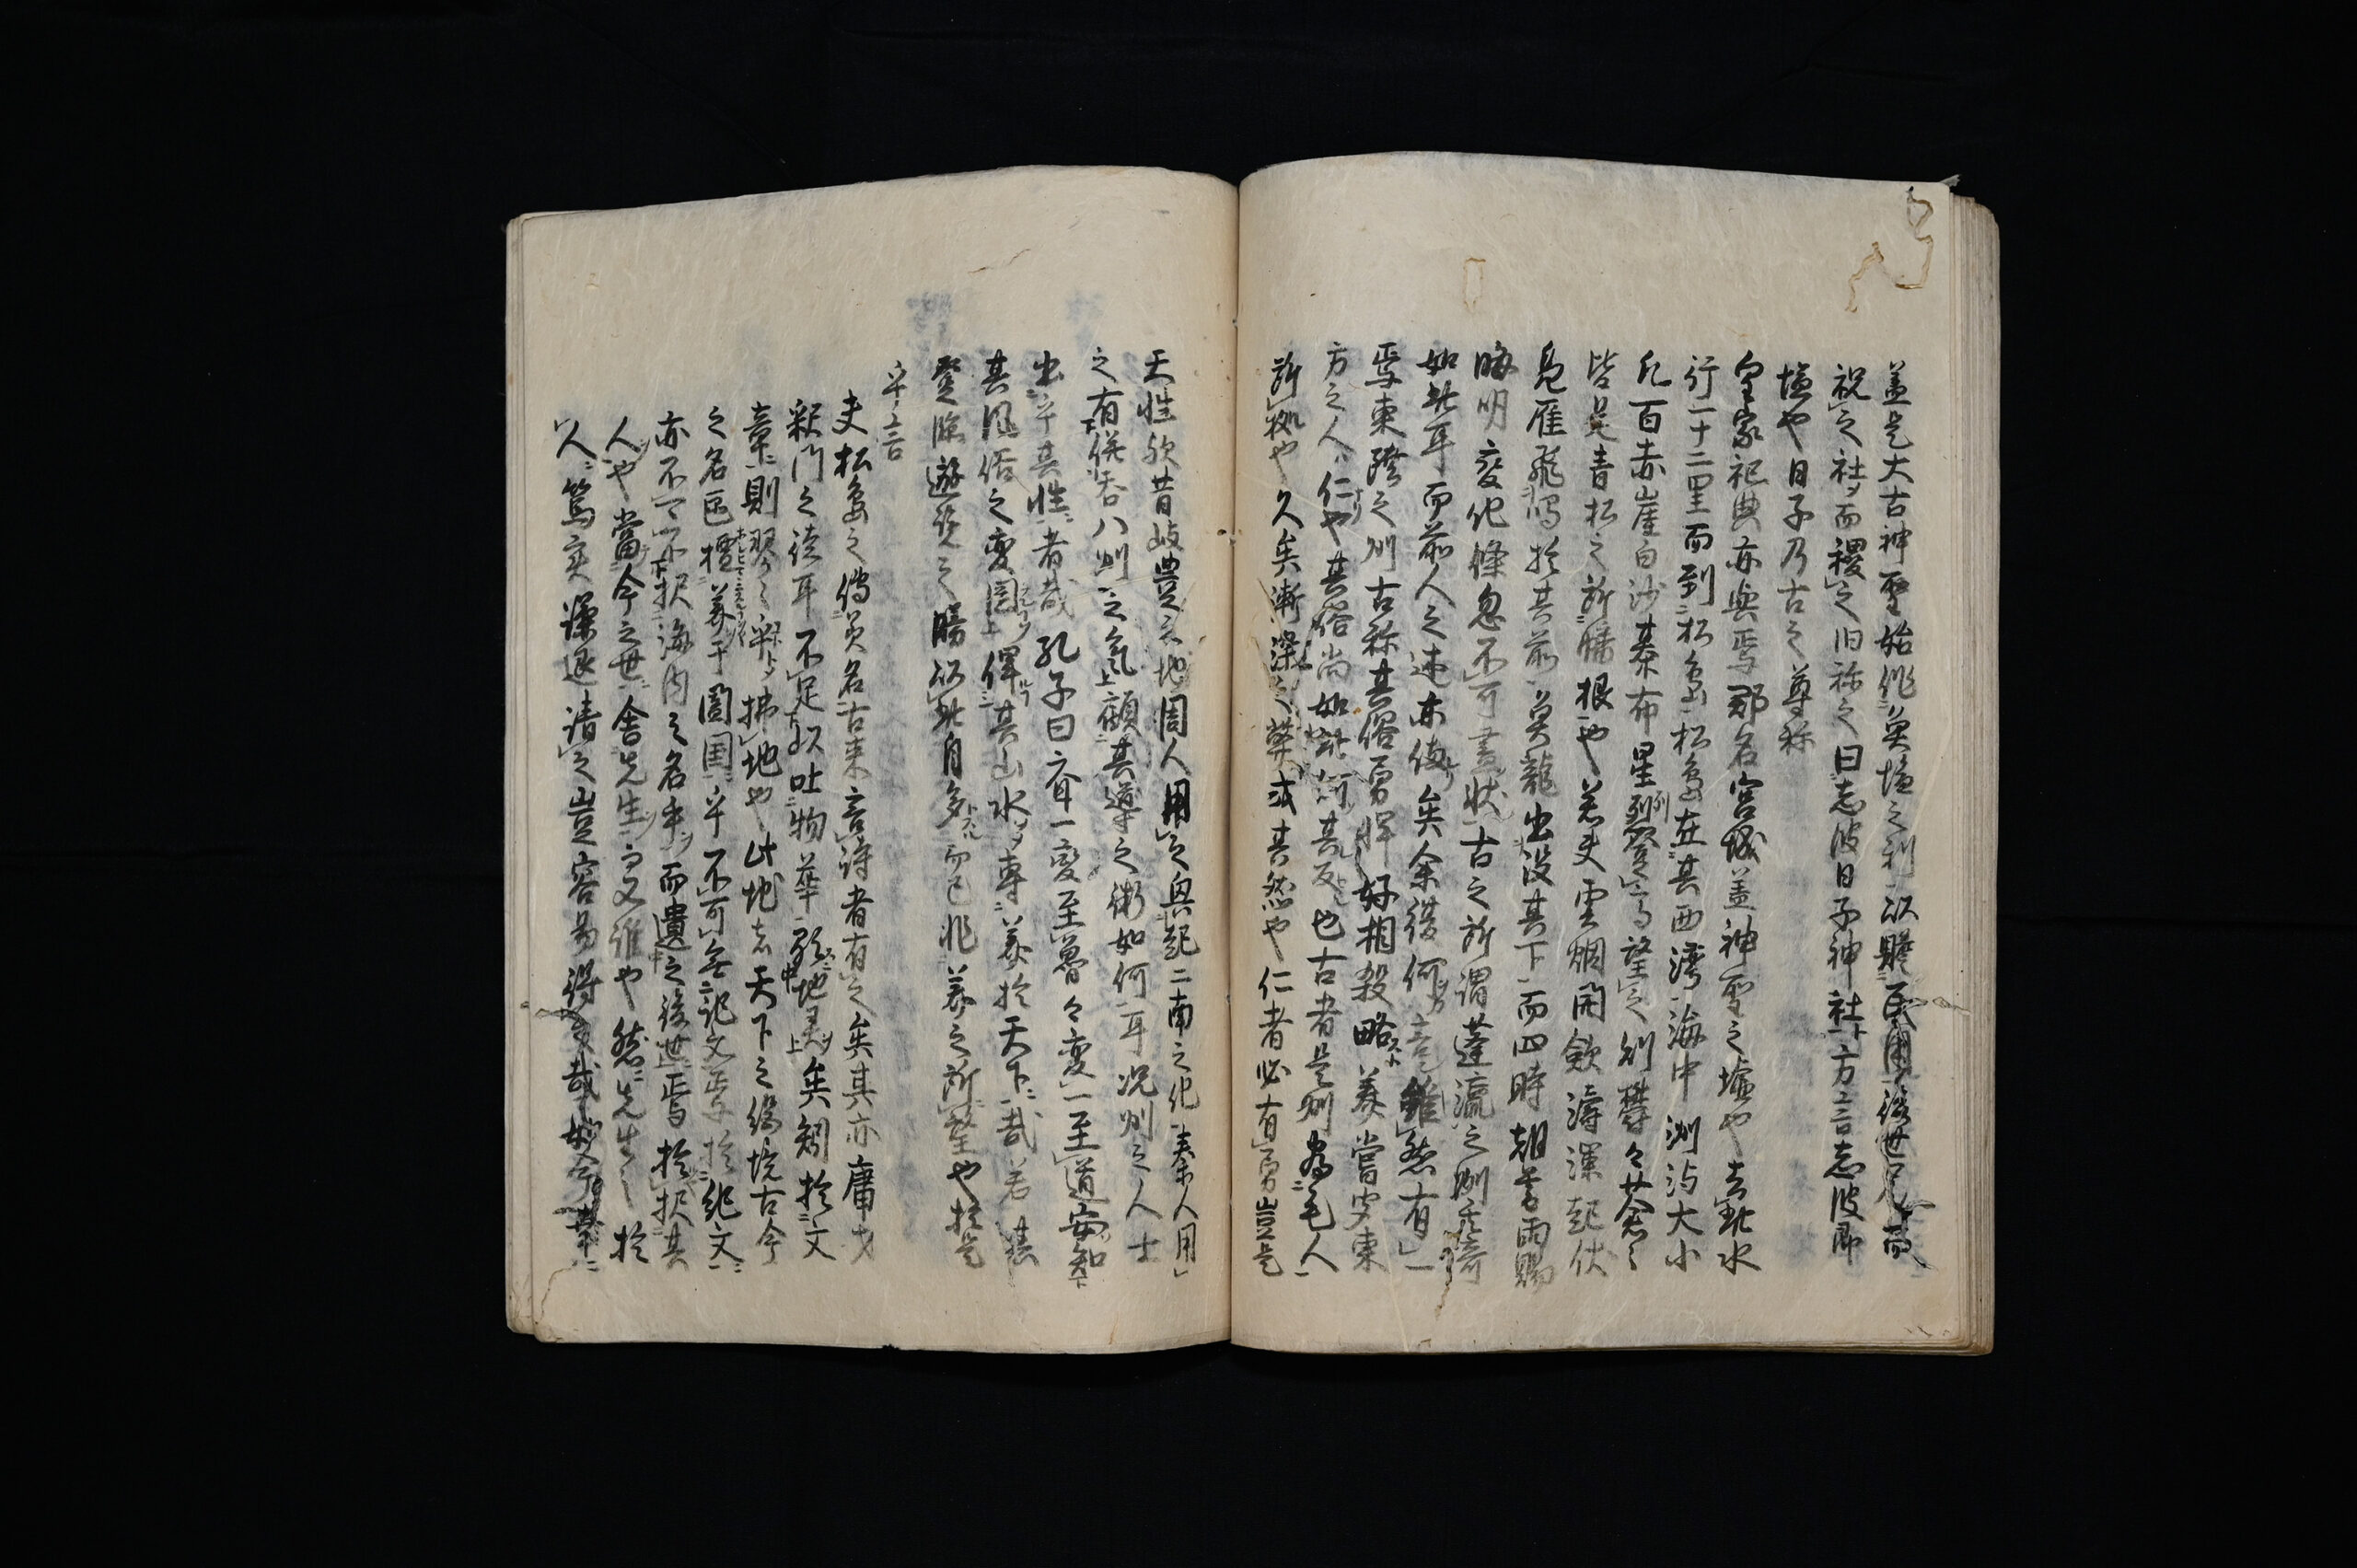 蓋是大古神聖始作奐塩之利以賑民用後世　而
祝之社而稷之旧称之曰志波日子神社方言志波即
塩也日子乃古之尊称
皇家祀典亦與焉郡名宮城蓋神聖之墟也去此水
行一十二里而到松島松島在其西湾海中洲沚大小
凡百赤崖白沙棊布星列登高望之則欝々葱々
皆是青松之所蟠根也若夫雲烟開歛濤瀾起伏
鳧雁飛鳴於其前奐龍出没其下而四時朝昏雨暘
晦明変化倐忽不可盡状古之所謂蓬瀛之洲
如此耳而前人之述亦備矣余復何言雖然有一
焉東隣之州古称其俗勇悍好相殺略蓋嘗
方之人仁也其俗尚如此何其反也古者是州為毛人
所拠也久矣漸染之弊或其然也仁者必有勇豈是
天性歟昔岐豊之地周人用之興起二南之化秦人用
之有併呑八州之気顧其導之術如何耳况州之人士
出乎其性者哉孔子曰齊一變至魯々變一至道安知
其風俗之變固俾其山水専美於天下哉若其
登臨遊覧之勝以此自多而已非美之所　也於是
乎言
夫松島之傳奐名古来言詩者有之矣其亦庸才
釈門之徒耳不足以吐物華　地　矣矧於文
章則琴々乎拂地也此地者天下之絶境古今
之名区擅美于闔国乎不可無記文焉於紀文
亦不可不択海内之名手而遺之後世焉於択其
人也當今之世舍先生而又誰也然先生之於
人篤実謙退請之豈容易得